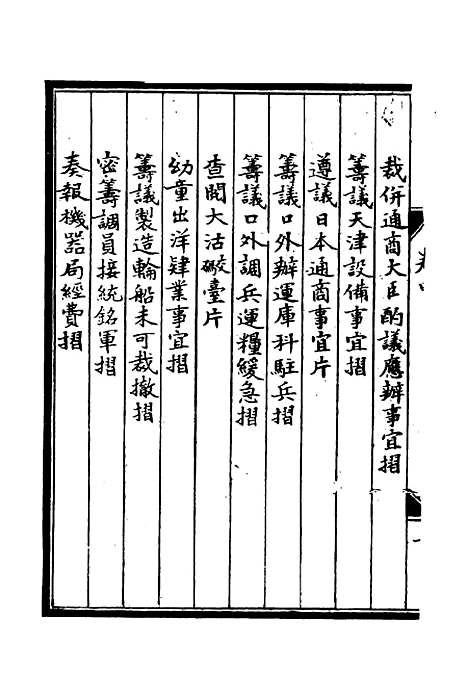 裁併通商大臣酌議應辦事宜摺
籌議天津設備事宜摺
遵議日本通商事宜片
籌議口外辦運庫科駐兵摺
籌議口外調兵運糧緩急摺
查閱大沽礮臺片
幼童出洋肄業事宜摺
籌議製造輪船未可裁撤摺
密籌調員接統銘軍摺
奏報機器局經費摺